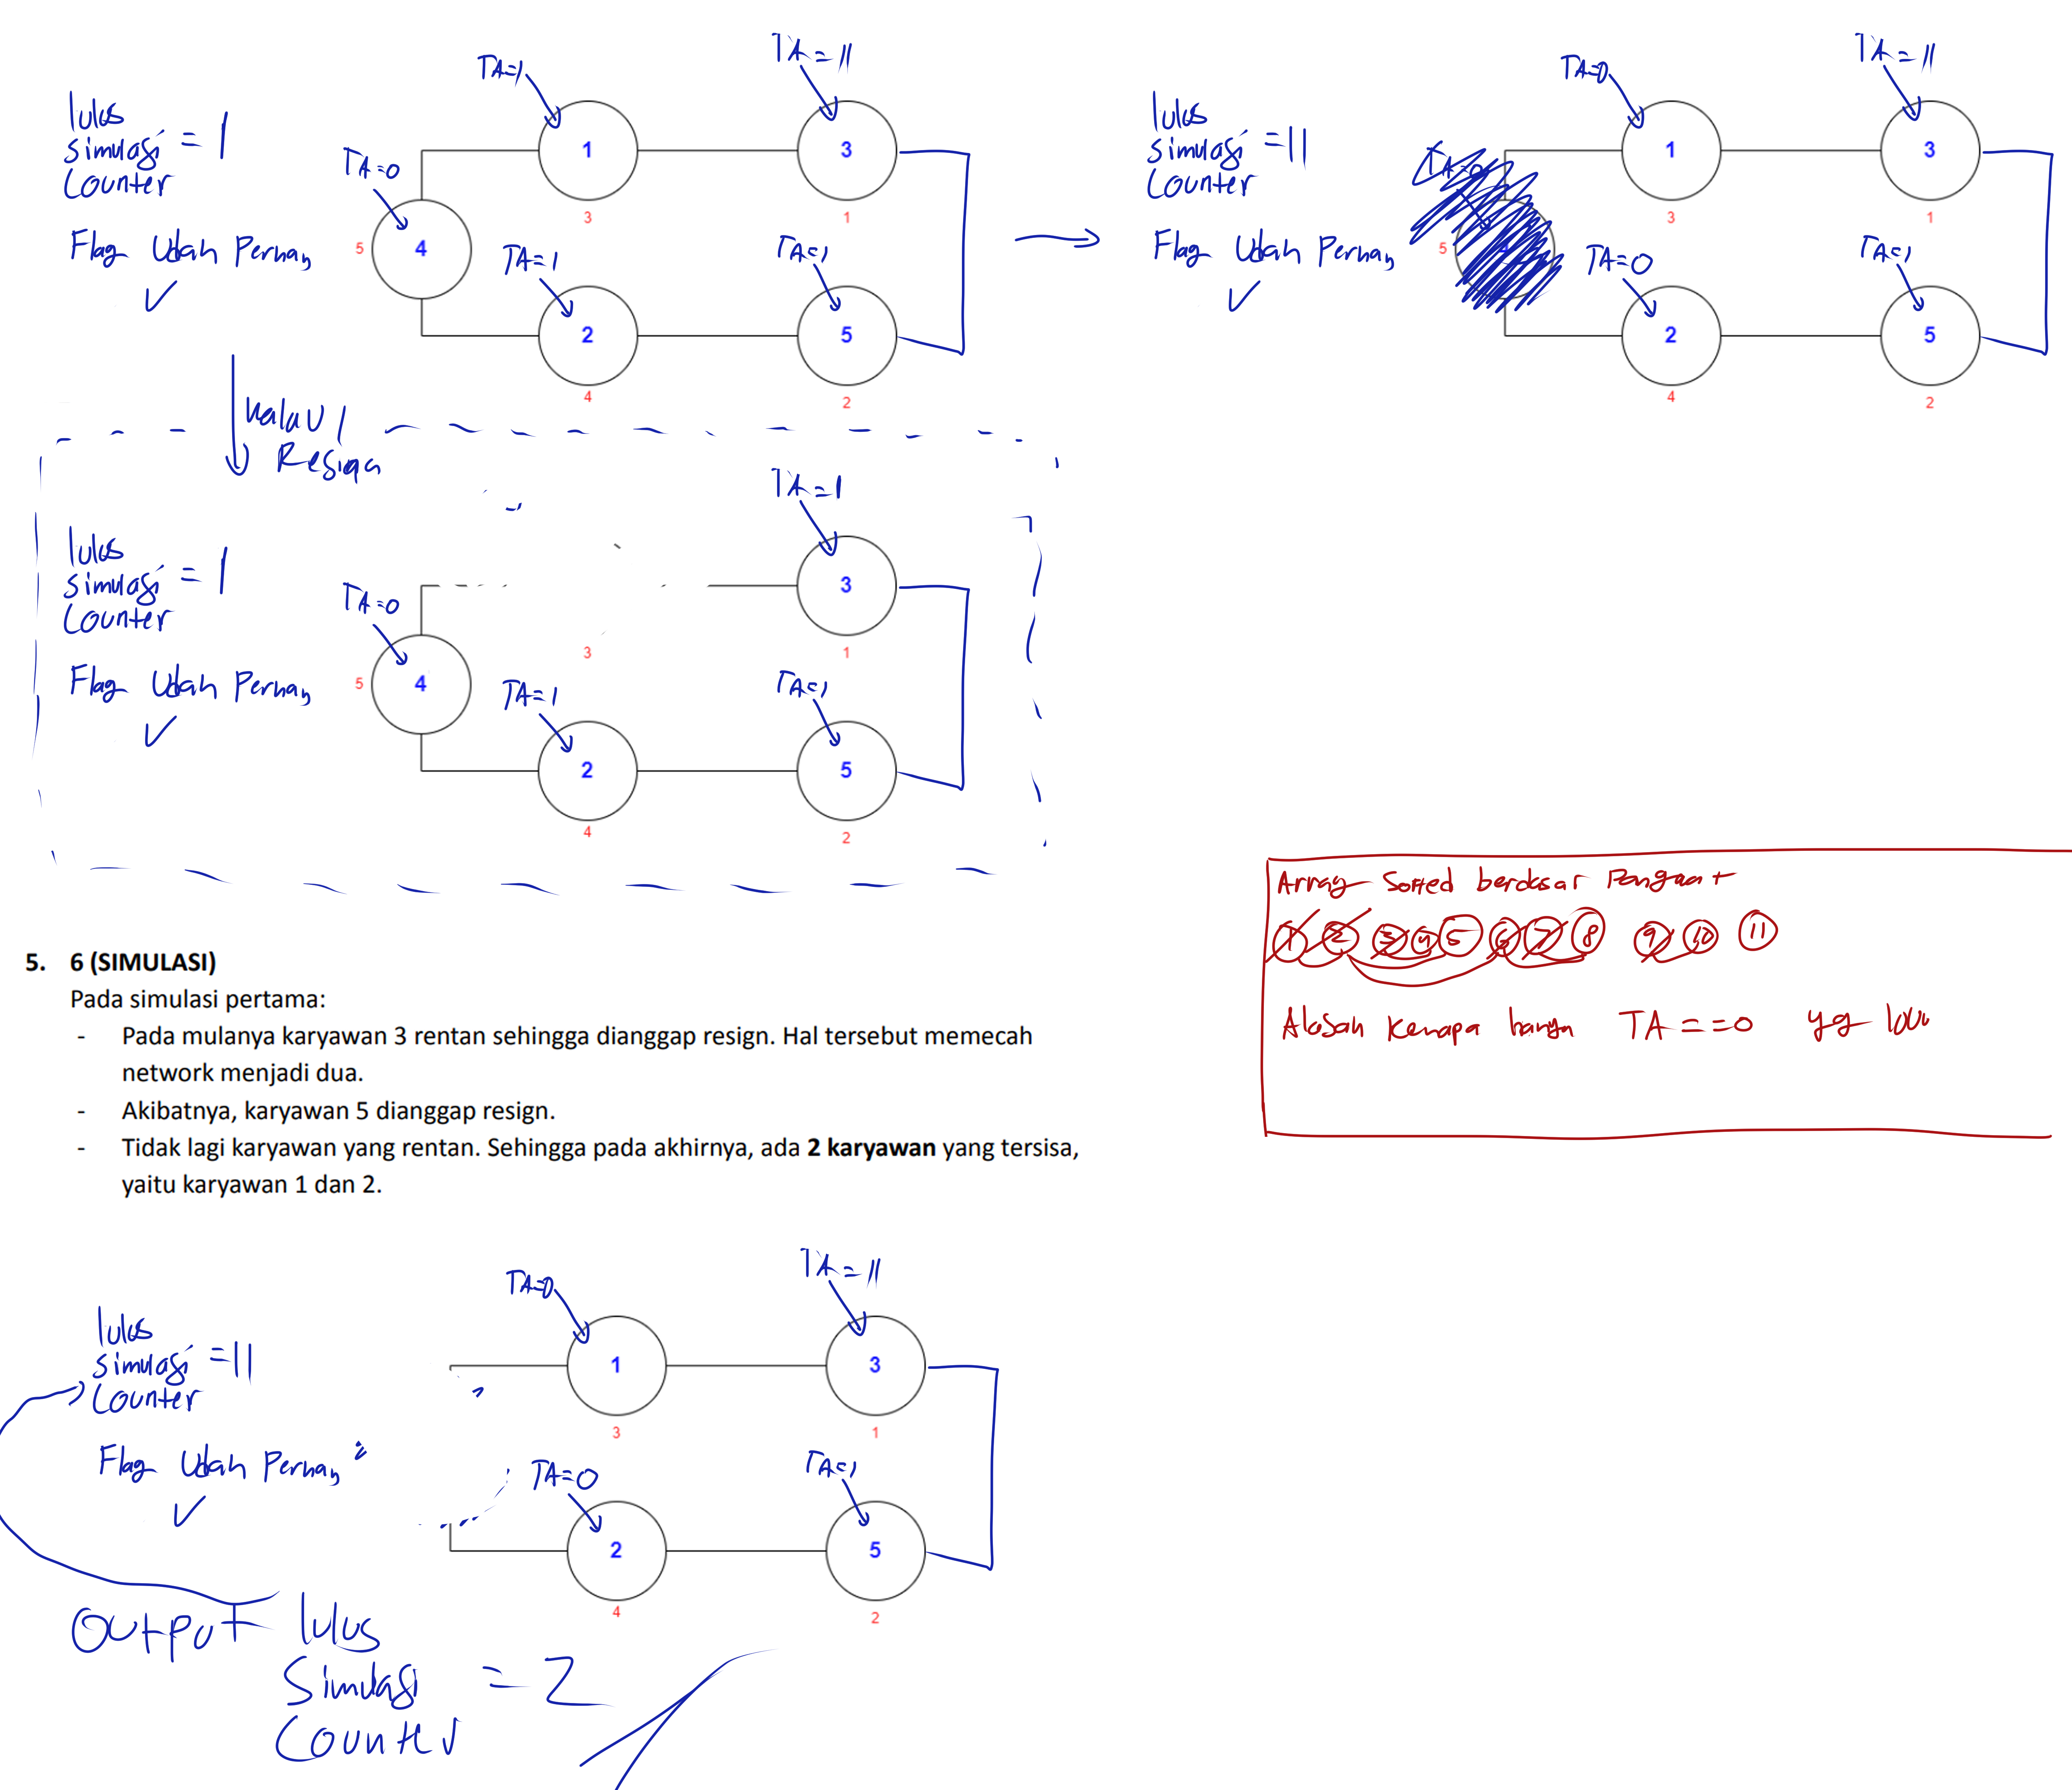 TA=1
TA=11
lulus
simulasi = 1
Counter
TA=0
1
3
3
1
Flag Udah Pernah
✓
5
4
TA=1
TA=1
2
5
4
2
TA=0
TA=11
lulus
simulasi =11
Counter
TA=0
1
3
3
1
Flag Udah Pernah
✓
5
TA=0
TA=1
2
5
4
2
kalau 1
Resign
TA=1
lulus
simulasi = 1
Counter
TA=0
3
3
1
Flag Udah Pernah
✓
5
4
TA=1
TA=1
2
5
4
2
Array Sorted berdasar Pangkat
1 2 3 4 5 6 7 8 9 10 11
Alasan Kenapa hanya TA==0 yg
5. 6 (SIMULASI)
Pada simulasi pertama:
- Pada mulanya karyawan 3 rentan sehingga dianggap resign. Hal tersebut memecah
network menjadi dua.
- Akibatnya, karyawan 5 dianggap resign.
- Tidak lagi karyawan yang rentan. Sehingga pada akhirnya, ada 2 karyawan yang tersisa,
yaitu karyawan 1 dan 2.
TA=0
TA=11
lulus
simulasi =11
Counter
1
3
3
1
Flag Udah Pernah
✓
TA=0
TA=1
2
5
4
2
Output lulus
Simulasi = 2
Counter